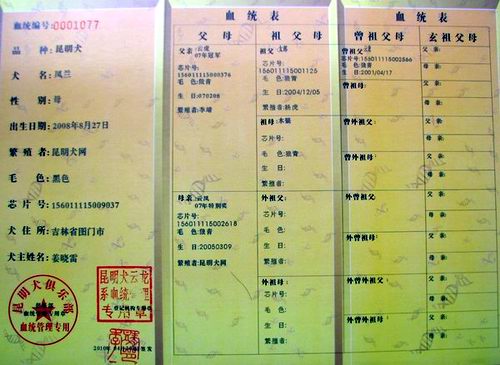 血统编号:0001077
品 种:昆明犬
犬 名:凤兰
性 别:母
出生日期:2008年8月27日
繁 殖 者:昆明犬网
毛 色:黑色
芯 片 号:156011115009037
犬 住 所:吉林省图门市
犬主姓名:姜晓雷
昆明犬俱乐部
血统管理专用
昆明犬云龙
系血统管理
专用章
登记机构专用章
血 统 表
父 母
父亲:云虎
07年冠军
芯片号:
156011115000376
毛 色:狼青
生 日:070208
繁殖者:李靖
母亲:云凤
07年特别奖
芯片号:
156011115002618
毛 色:狼青
生 日:20050309
繁殖者:昆明犬网
祖 父 母
祖 父:
芯片号:
156011115001125
毛 色:狼青
生 日:2004/12/05
繁殖者:
祖母:木银
芯片号:
毛 色:狼青
生 日:
繁殖者:
外祖父:
芯片号:
毛 色:
生 日:
繁殖者:
外祖母:
芯片号:
毛 色:
生 日:
繁殖者:
血 统 表
曾 祖 父 母
曾祖父:
芯片号:156011115002566
毛 色:狼青
生 日:2001/04/17
曾祖母:
曾外祖父:
曾外祖母:
外曾祖父:
外曾祖母:
外曾外祖父:
外曾外祖母:
玄 祖 父 母
父 亲:
母 亲:
父亲:
母亲:
父亲:
母亲:
父亲:
母亲:
父亲:
母亲:
父亲:
母亲:
父亲:
母亲:
父亲:
母亲: